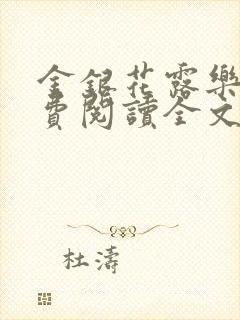 金銀花露樂
費閱讀全文
杜濤